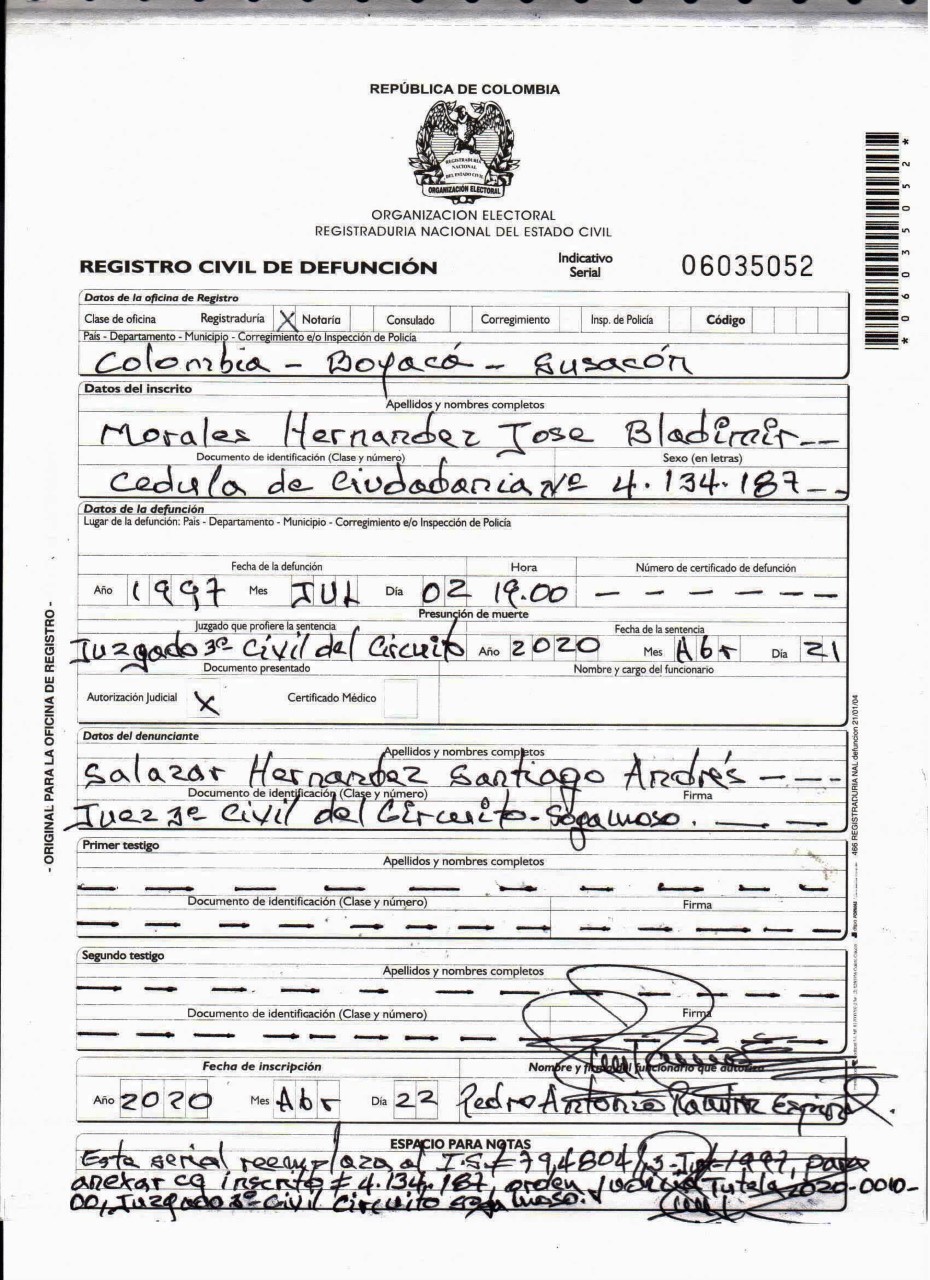 REPÚBLICA DE COLOMBIA
REGISTRADURIA
NACIONAL
DEL ESTADO CIVIL
ORGANIZACIÓN ELECTORAL
ORGANIZACION ELECTORAL
REGISTRADURIA NACIONAL DEL ESTADO CIVIL
REGISTRO CIVIL DE DEFUNCIÓN
Indicativo Serial 06035052
* 0 6 0 3 5 0 5 2 *
Datos de la oficina de Registro
Clase de oficina Registraduría X Notaría Consulado Corregimiento Insp. de Policía Código
País - Departamento - Municipio - Corregimiento e/o Inspección de Policía
Colombia - Boyacá - Susacón
Datos del inscrito
Apellidos y nombres completos
Morales Hernandez Jose Bladimir--
Documento de identificación (Clase y número) Sexo (en letras)
Cedula de Ciudadania Nº 4.134.187--
Datos de la defunción
Lugar de la defunción: País - Departamento - Municipio - Corregimiento e/o Inspección de Policía
Fecha de la defunción Hora Número de certificado de defunción
Año 1997 Mes JUL Día 02 19.00 - - - - - -
Presunción de muerte
Juzgado que profiere la sentencia Fecha de la sentencia
Juzgado 3º Civil del Circuito Año 2020 Mes Abr Día 21
Documento presentado Nombre y cargo del funcionario
Autorización Judicial X Certificado Médico
Datos del denunciante
Apellidos y nombres completos
Salazar Hernandez Santiago Andrés - - -
Documento de identificación (Clase y número) Firma
Juez 3º Civil del Circuito-Sogamoso. - -
Primer testigo
Apellidos y nombres completos
Documento de identificación (Clase y número) Firma
Segundo testigo
Apellidos y nombres completos
Documento de identificación (Clase y número) Firma
Fecha de inscripción Nombre y firma del funcionario que autoriza
Año 2020 Mes Abr Día 22 Pedro Antonio Ramirez
ESPACIO PARA NOTAS
Esta serial reemplaza al I.S. 1997, para
anexar cc inscrito # 4.134.187, orden Tutela 2020-0010-
00, Juzgado 3º Civil Circuito Sogamoso.
- ORIGINAL PARA LA OFICINA DE REGISTRO -
466 REGISTRADURIA NAL defuncion 21/01/04